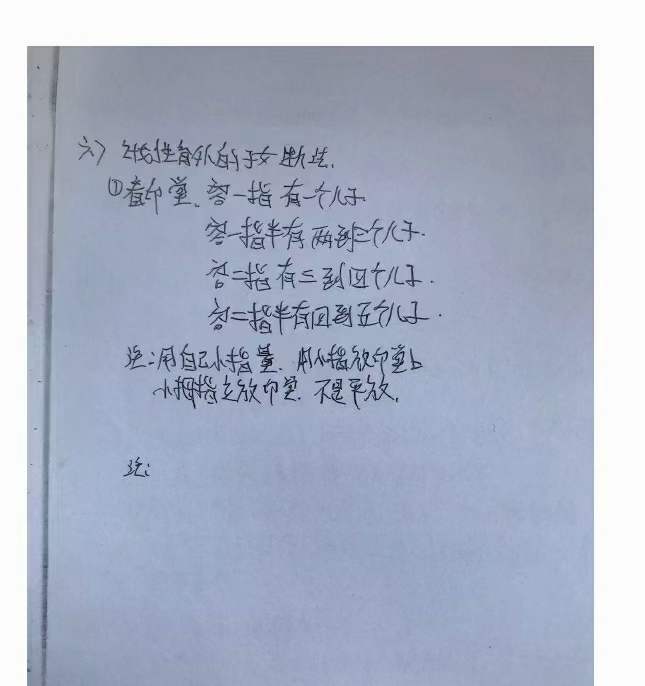 六) 的子女断法.
①看印堂、容一指 有一个儿子.
容一指半有 两到三个儿子.
容二指 有三到四个儿子.
容二指半有四到五个儿子.
注:用自己小指量. 用小指放印堂
小拇指立放印堂. 不是平放.
注: